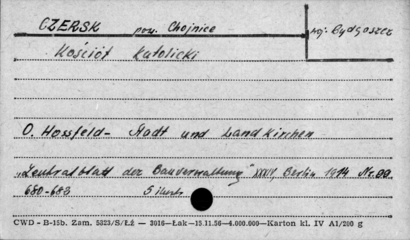 CZERSK pow. Chojnice
woj. Bydgoszcz
Kościół katolicki
O. Hossfeld - Stadt und Landkirchen
"Zentralblatt der Bauverwaltung" XXXIV, Berlin 1914 Nr. 99
680-683 5 ilustr.
CWD - B-15b. Zam. 5323/S/Łź — 2016—Łak—15.11.56—4.000.000—Karton kl. IV A1/200 g